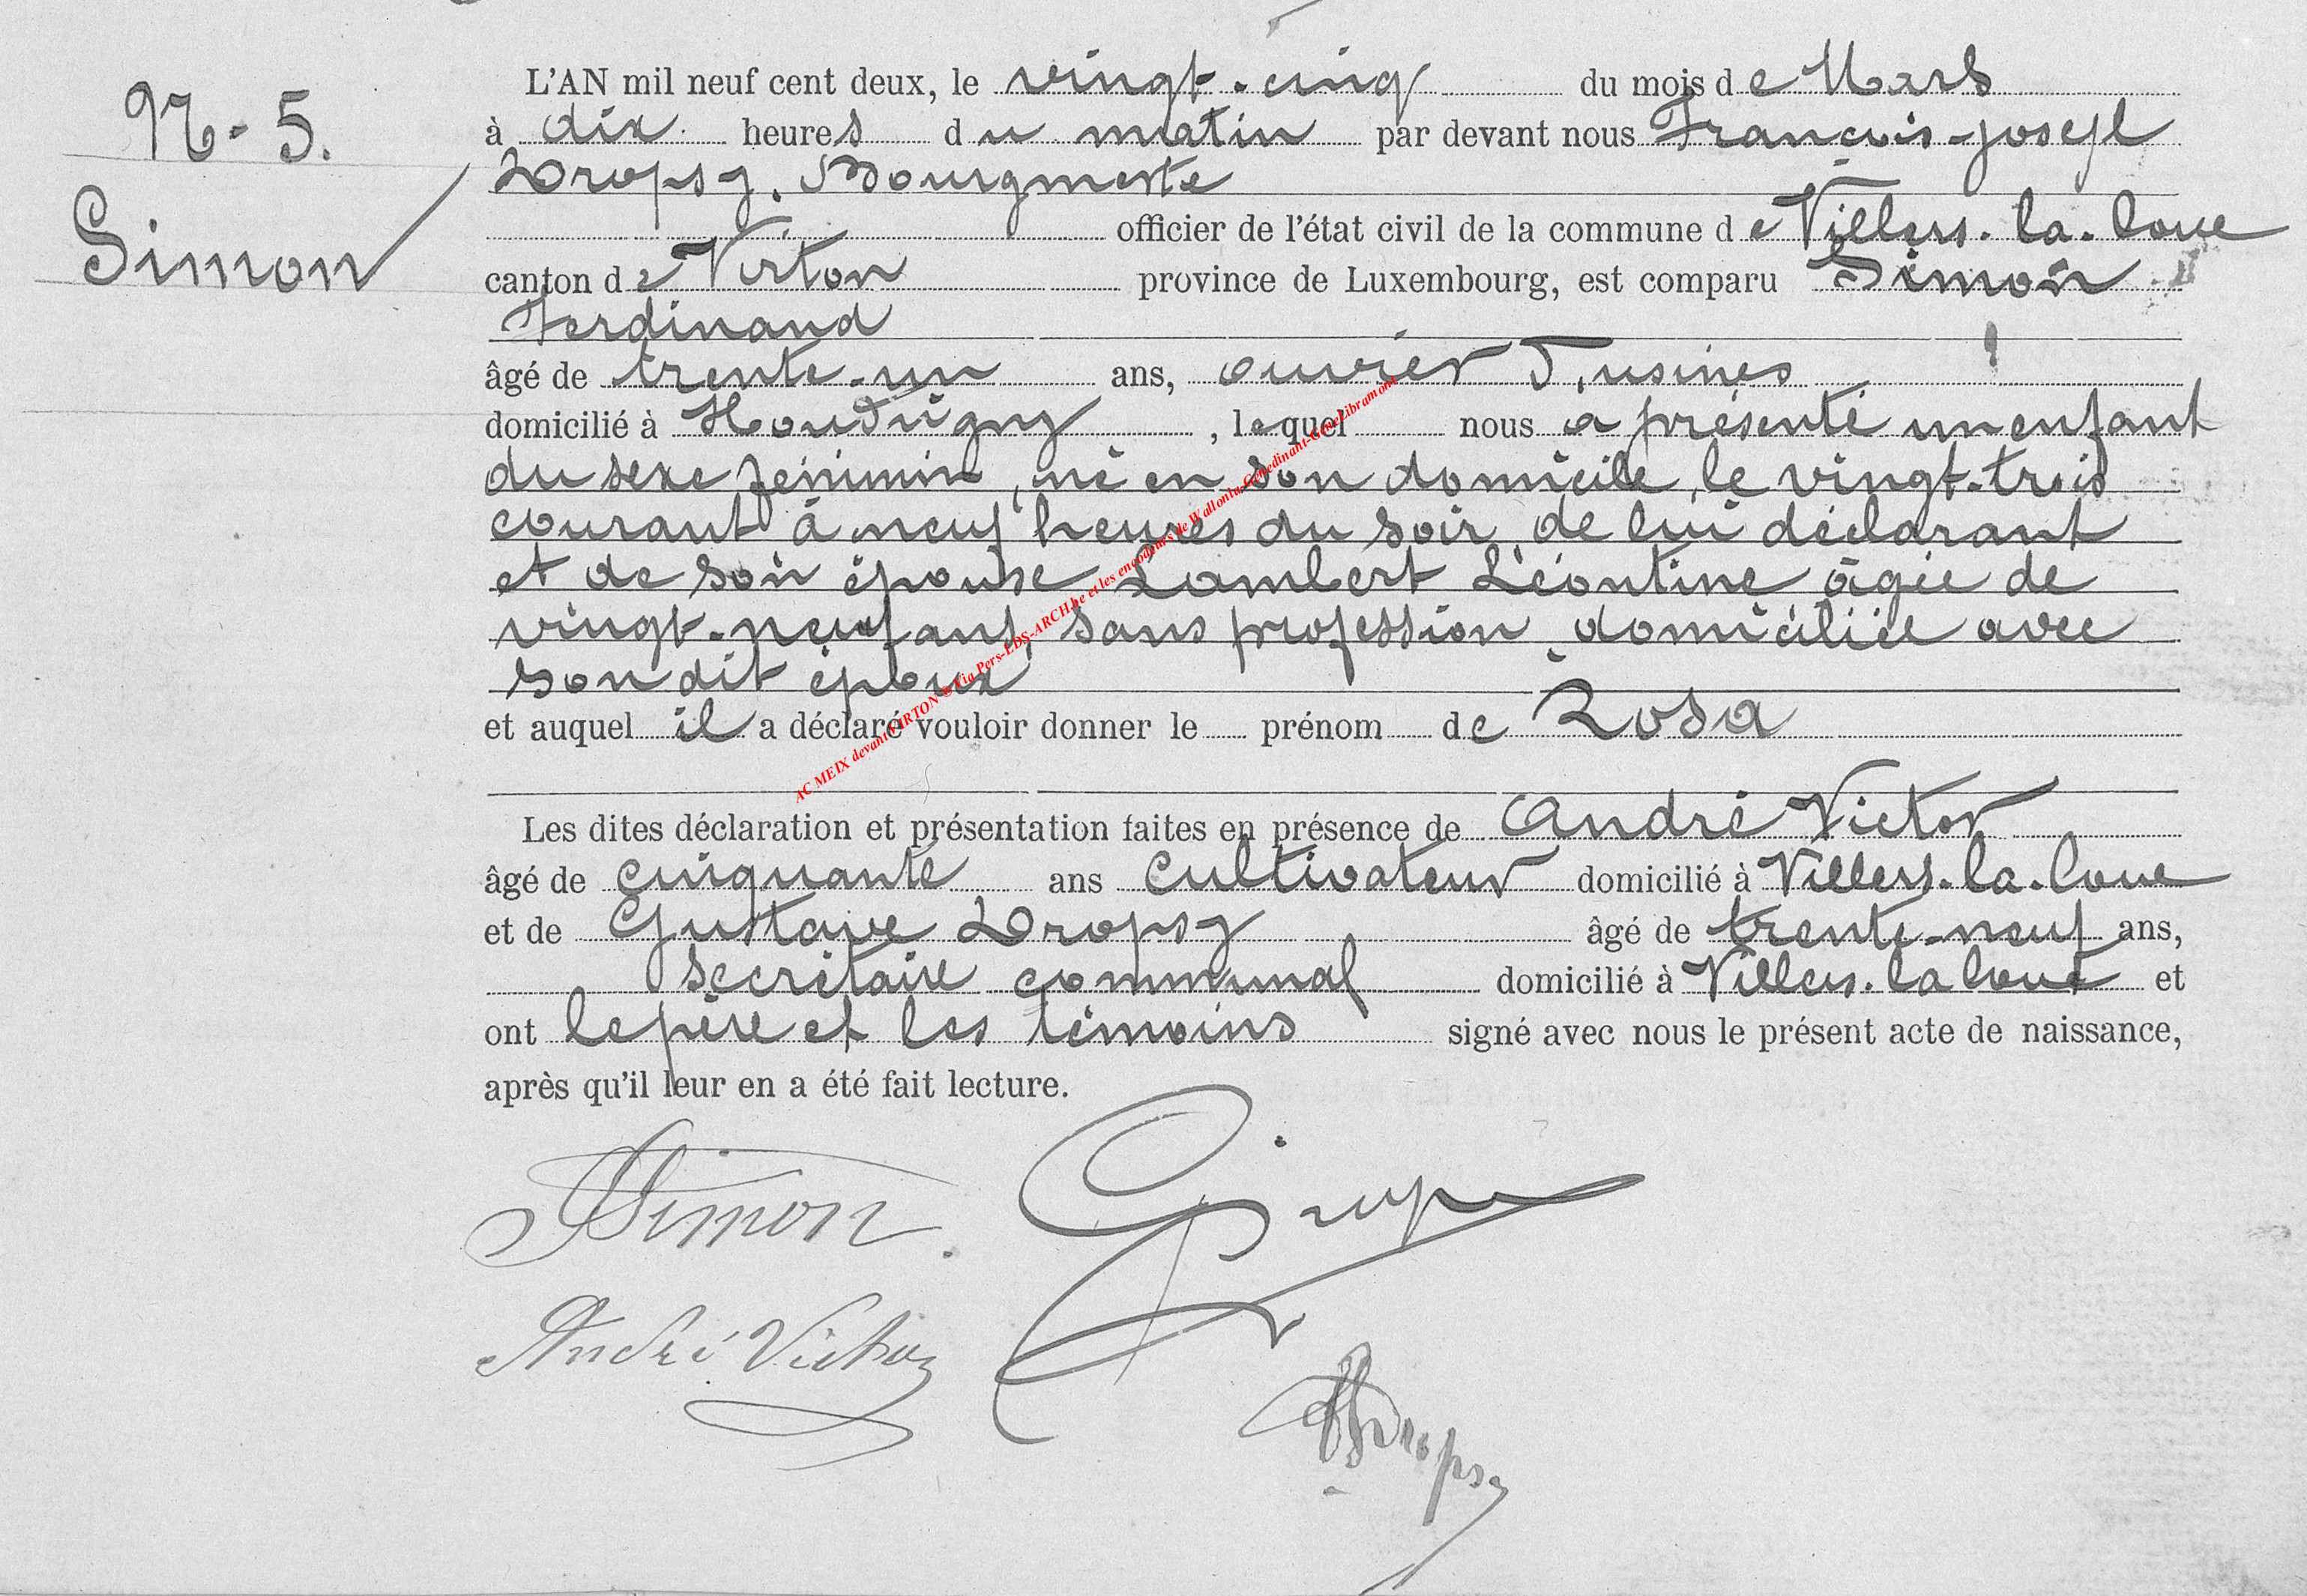 N - 5.
Simon
L'AN mil neuf cent deux, le vingt-cinq du mois de Mars
à dix heures du matin par devant nous François-Joseph
Dropsy, Bourgmestre
officier de l'état civil de la commune de Villers-la-loue
canton de Virton province de Luxembourg, est comparu Simon
Ferdinand
âgé de trente-un ans, ouvrier d'usines
domicilié à Houdrigny, lequel nous a présenté un enfant
du sexe féminin, né en son domicile, le vingt-trois
courant à neuf heures du soir, de lui déclarant
et de son épouse Lambert Léontine âgée de
vingt-neuf ans, sans profession, domiciliée avec
son dit époux
et auquel il a déclaré vouloir donner le prénom de Rosa
Les dites déclaration et présentation faites en présence de André Victor
âgé de cinquante ans cultivateur domicilié à Villers-la-loue
et de Gustave Dropsy âgé de trente-neuf ans,
secrétaire communal domicilié à Villers-la loue et
ont le père et les témoins signé avec nous le présent acte de naissance,
après qu'il leur en a été fait lecture.
Simon.
André Victor
Dropsy
AC MEIX devant VIRTON © via Pers-LDS-ARCH.be et les encodeurs de Wallonia-Gedinant-GeneLibramont